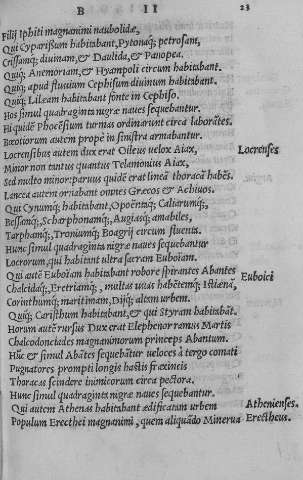 B II 23
Filij Iphiti magnanimi naubolidæ,
Qui Cyparissum habitabant, Pytonaq; petrosam,
Crissamq; diuinam, & Daulida, & Panopea.
Quiq; Anemoriam, & Hyampoli circum habitabant.
Quiq; apud fluuium Cephisum diuinum habitabant.
Quiq; Lileam habitabant fonte in Cephiso.
Hos simul quadraginta nigræ naues sequebantur.
Hi quidē Phocēsium turmas ordinarunt circa laborātes.
Bœotiorum autem prope in sinistra armabantur.
Locrensibus autem dux erat Oileus uelox Aiax, Locrenses
Minor non tantus quantus Telamonius Aiax,
Sed multo minor: paruus quidē erat lineā thoracā habēs.
Lancea autem ornabant omnes Græcos & Achiuos.
Qui Cynumq; habitabant, Opoëntāq; Caliarumq;,
Bessamq;, Scarphonamq;, Augiasq; amabiles,
Tarphamq;, Troniumq; Boagrij circum fluenta.
Hunc simul quadraginta nigræ naues sequebantur
Locrorum, qui habitant ultra sacram Euboiam.
Qui autē Euboïam habitabant robore spirantes Abantes Euboici
Chalcidaq;, Eretriamq;, multas uuas habētemq; Istiæna,
Corinthumq; maritimam, Dijq; altam urbem.
Quiq; Caristhum habitabant, & qui Styram habitabāt.
Horum autē rursus Dux erat Elephenor ramus Martis
Chalcodonciades magnanimorum princeps Abantum.
Hūc & simul Abātes sequebātur ueloces à tergo comati
Pugnatores prompti longis hastis fraxineis
Thoracas scindere inimicorum circa pectora.
Hunc simul quadraginta nigræ naues sequebantur.
Qui autem Athenas habitabant ædificatam urbem Athenienses.
Populum Erecthei magnanimi, quem aliquādo Minerua Erectheus.